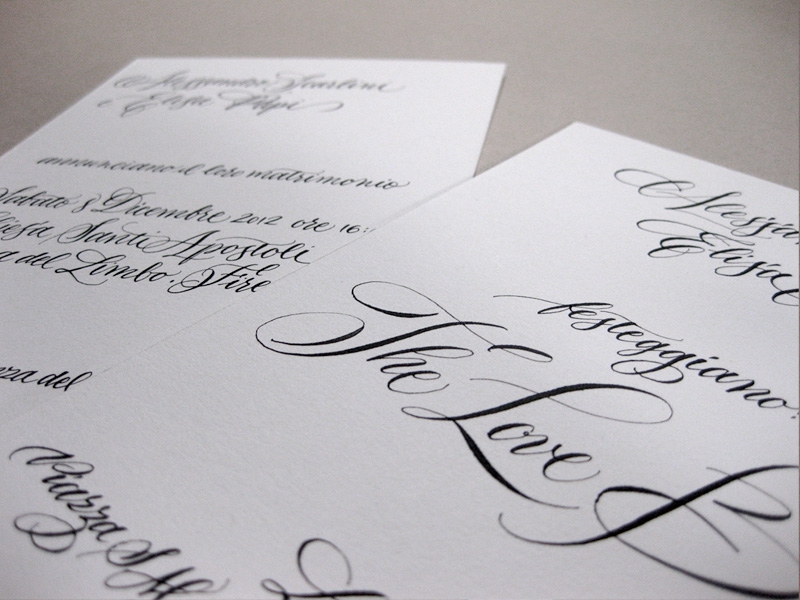 Alessandro Scarlini
e Elisa Volpi
annunciano il loro matrimonio
Sabato 8 Dicembre 2012 ore 16:
Santi Apostoli
del Limbo. Fire
del
Elisa
festeggiano
The Love
Piazza